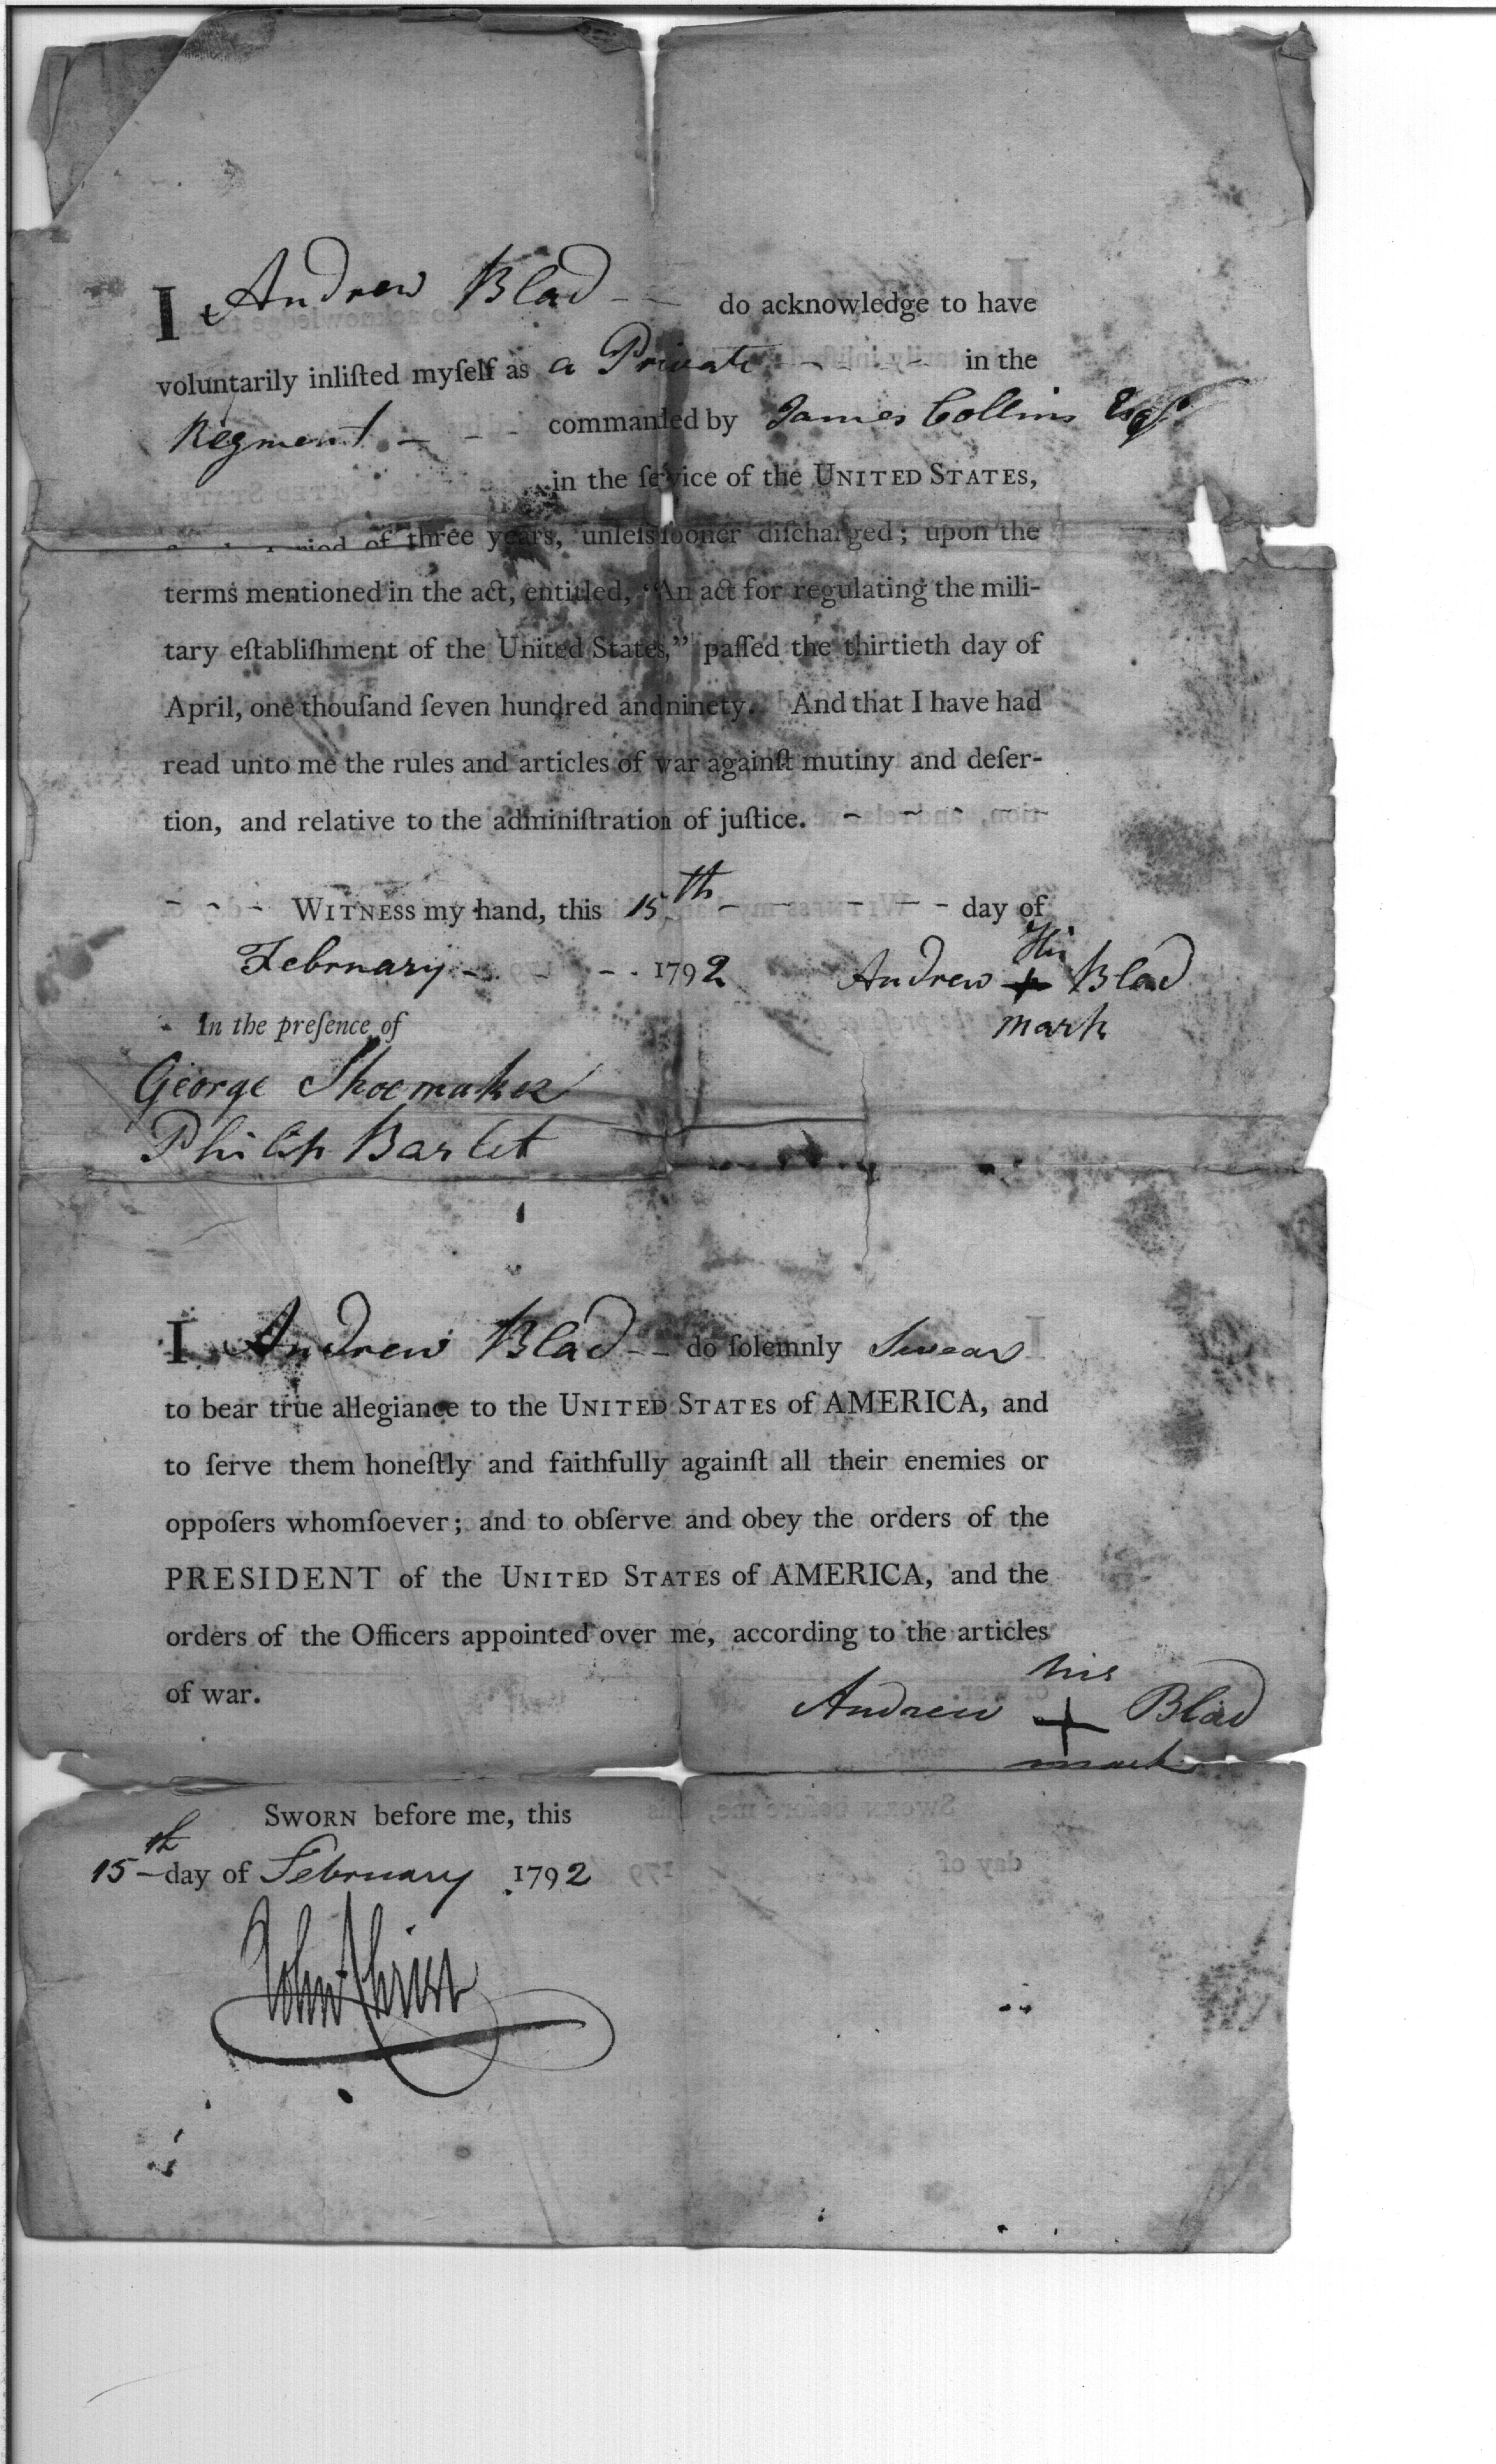 I Andrew Blad - - do acknowledge to have
voluntarily inliſted myſelf as a Private - - - - in the
Regment - - - commanded by James Collins Esqr.
in the ſervice of the UNITED STATES,
riod of three years, unleſs ſooner diſcharged; upon the
terms mentioned in the act, entitled, "An act for regulating the mili-
tary eſtabliſhment of the United States," paſſed the thirtieth day of
April, one thouſand ſeven hundred and ninety. And that I have had
read unto me the rules and articles of war againſt mutiny and deſer-
tion, and relative to the adminiſtration of juſtice. - - - -
- - - WITNESS my hand, this 15th - - - - - day of
February - - - 1792
His
Andrew + Blad
mark
In the preſence of
George Shoemaker
Philip Barlet
I Andrew Blad - - do ſolemnly Swear
to bear true allegiance to the UNITED STATES of AMERICA, and
to ſerve them honeſtly and faithfully againſt all their enemies or
oppoſers whomſoever; and to obſerve and obey the orders of the
PRESIDENT of the UNITED STATES of AMERICA, and the
orders of the Officers appointed over me, according to the articles
of war.
his
Andrew + Blad
mark
SWORN before me, this
15th day of February 1792
John